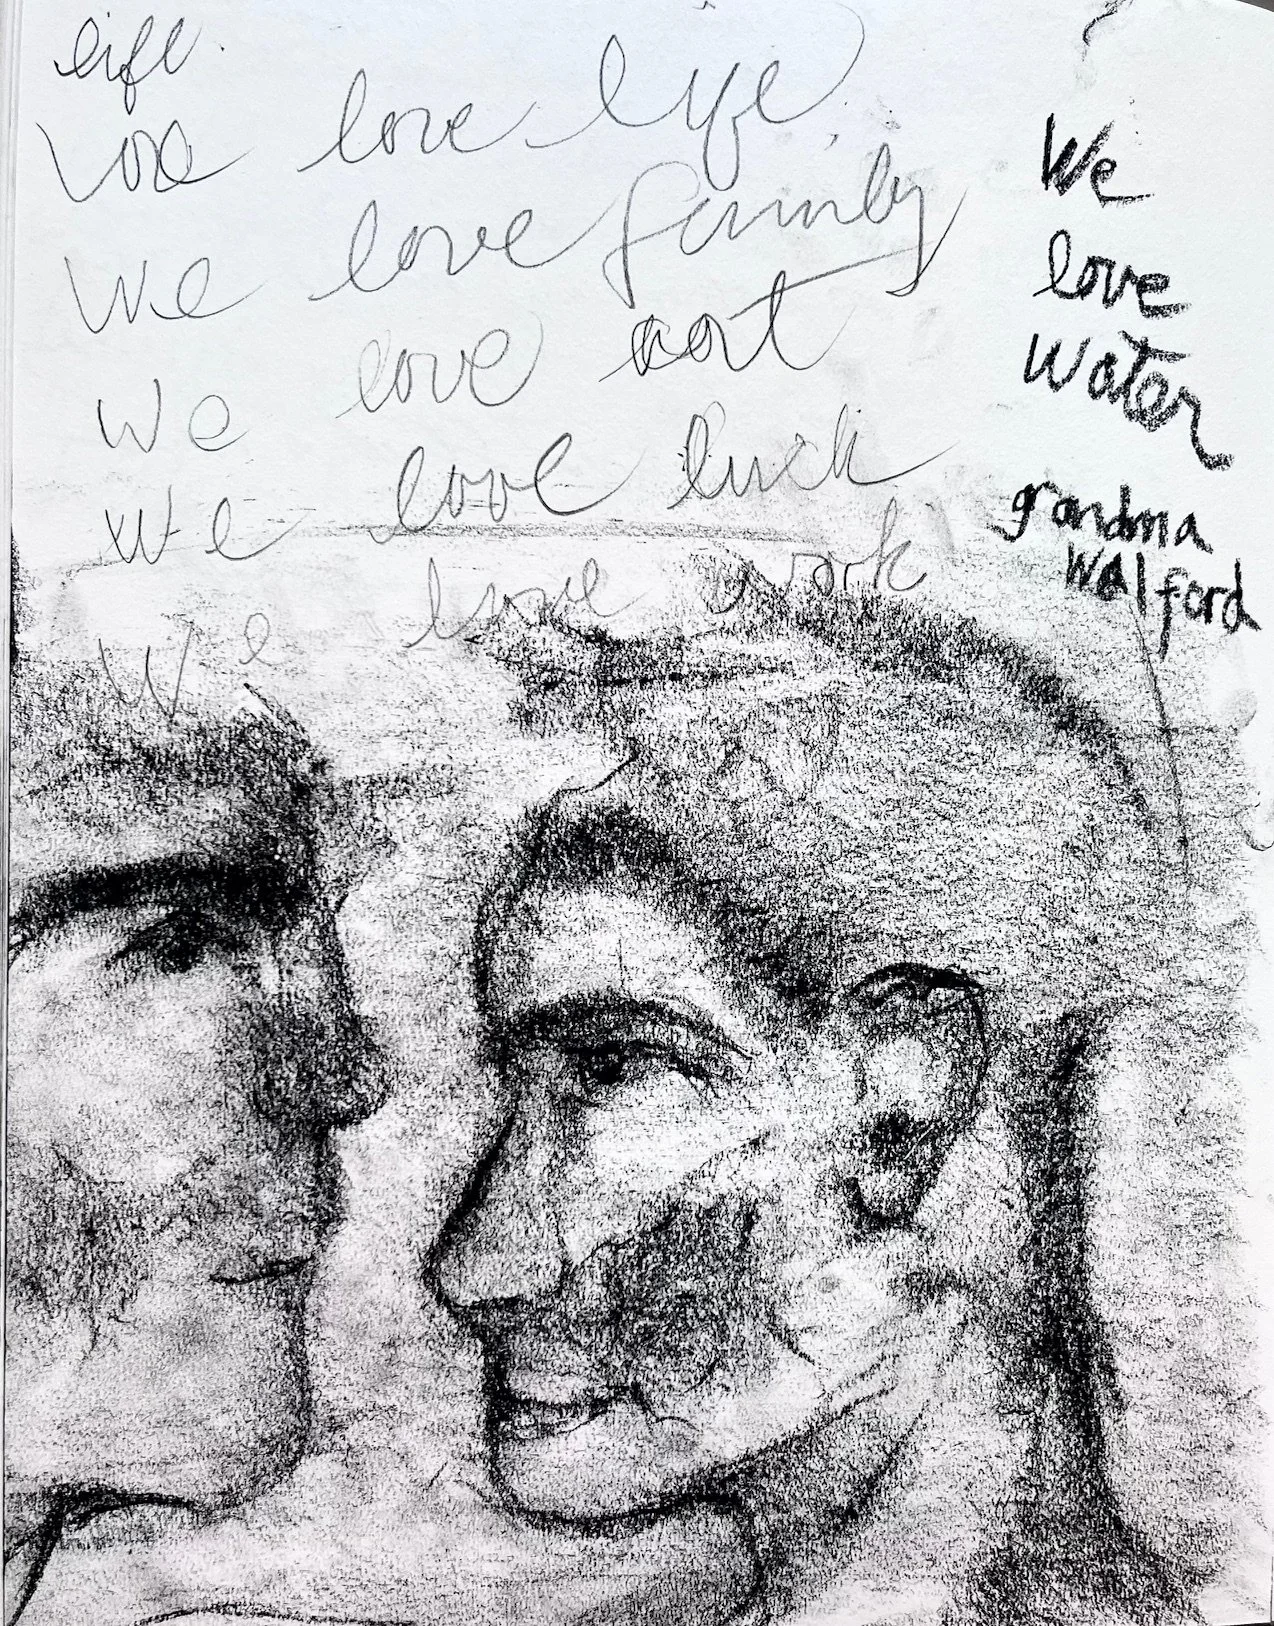 life
We love life
We love family
We love art
We love luck
We love work
We
love
Water
grandma
Walford